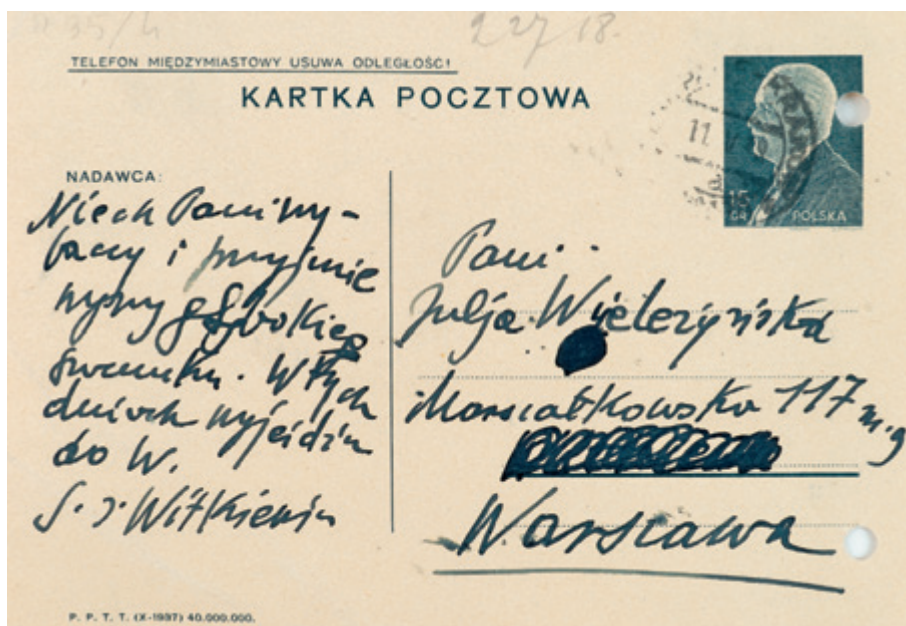 227 18.
TELEFON MIĘDZYMIASTOWY USUWA ODLEGŁOŚĆ!
KARTKA POCZTOWA
11
15
GR
POLSKA
NADAWCA:
Niech Pani wy-
baczy i przyjmie
wyrazy głębokiego
szacunku. W tych
dniach wyjeżdżam
do W.
S. I. Witkiewicz
Pani
Julja Wieleżyńska
Marszałkowska 117 m. 9
Warszawa
P. P. T. T. (X-1937) 40.000.000.